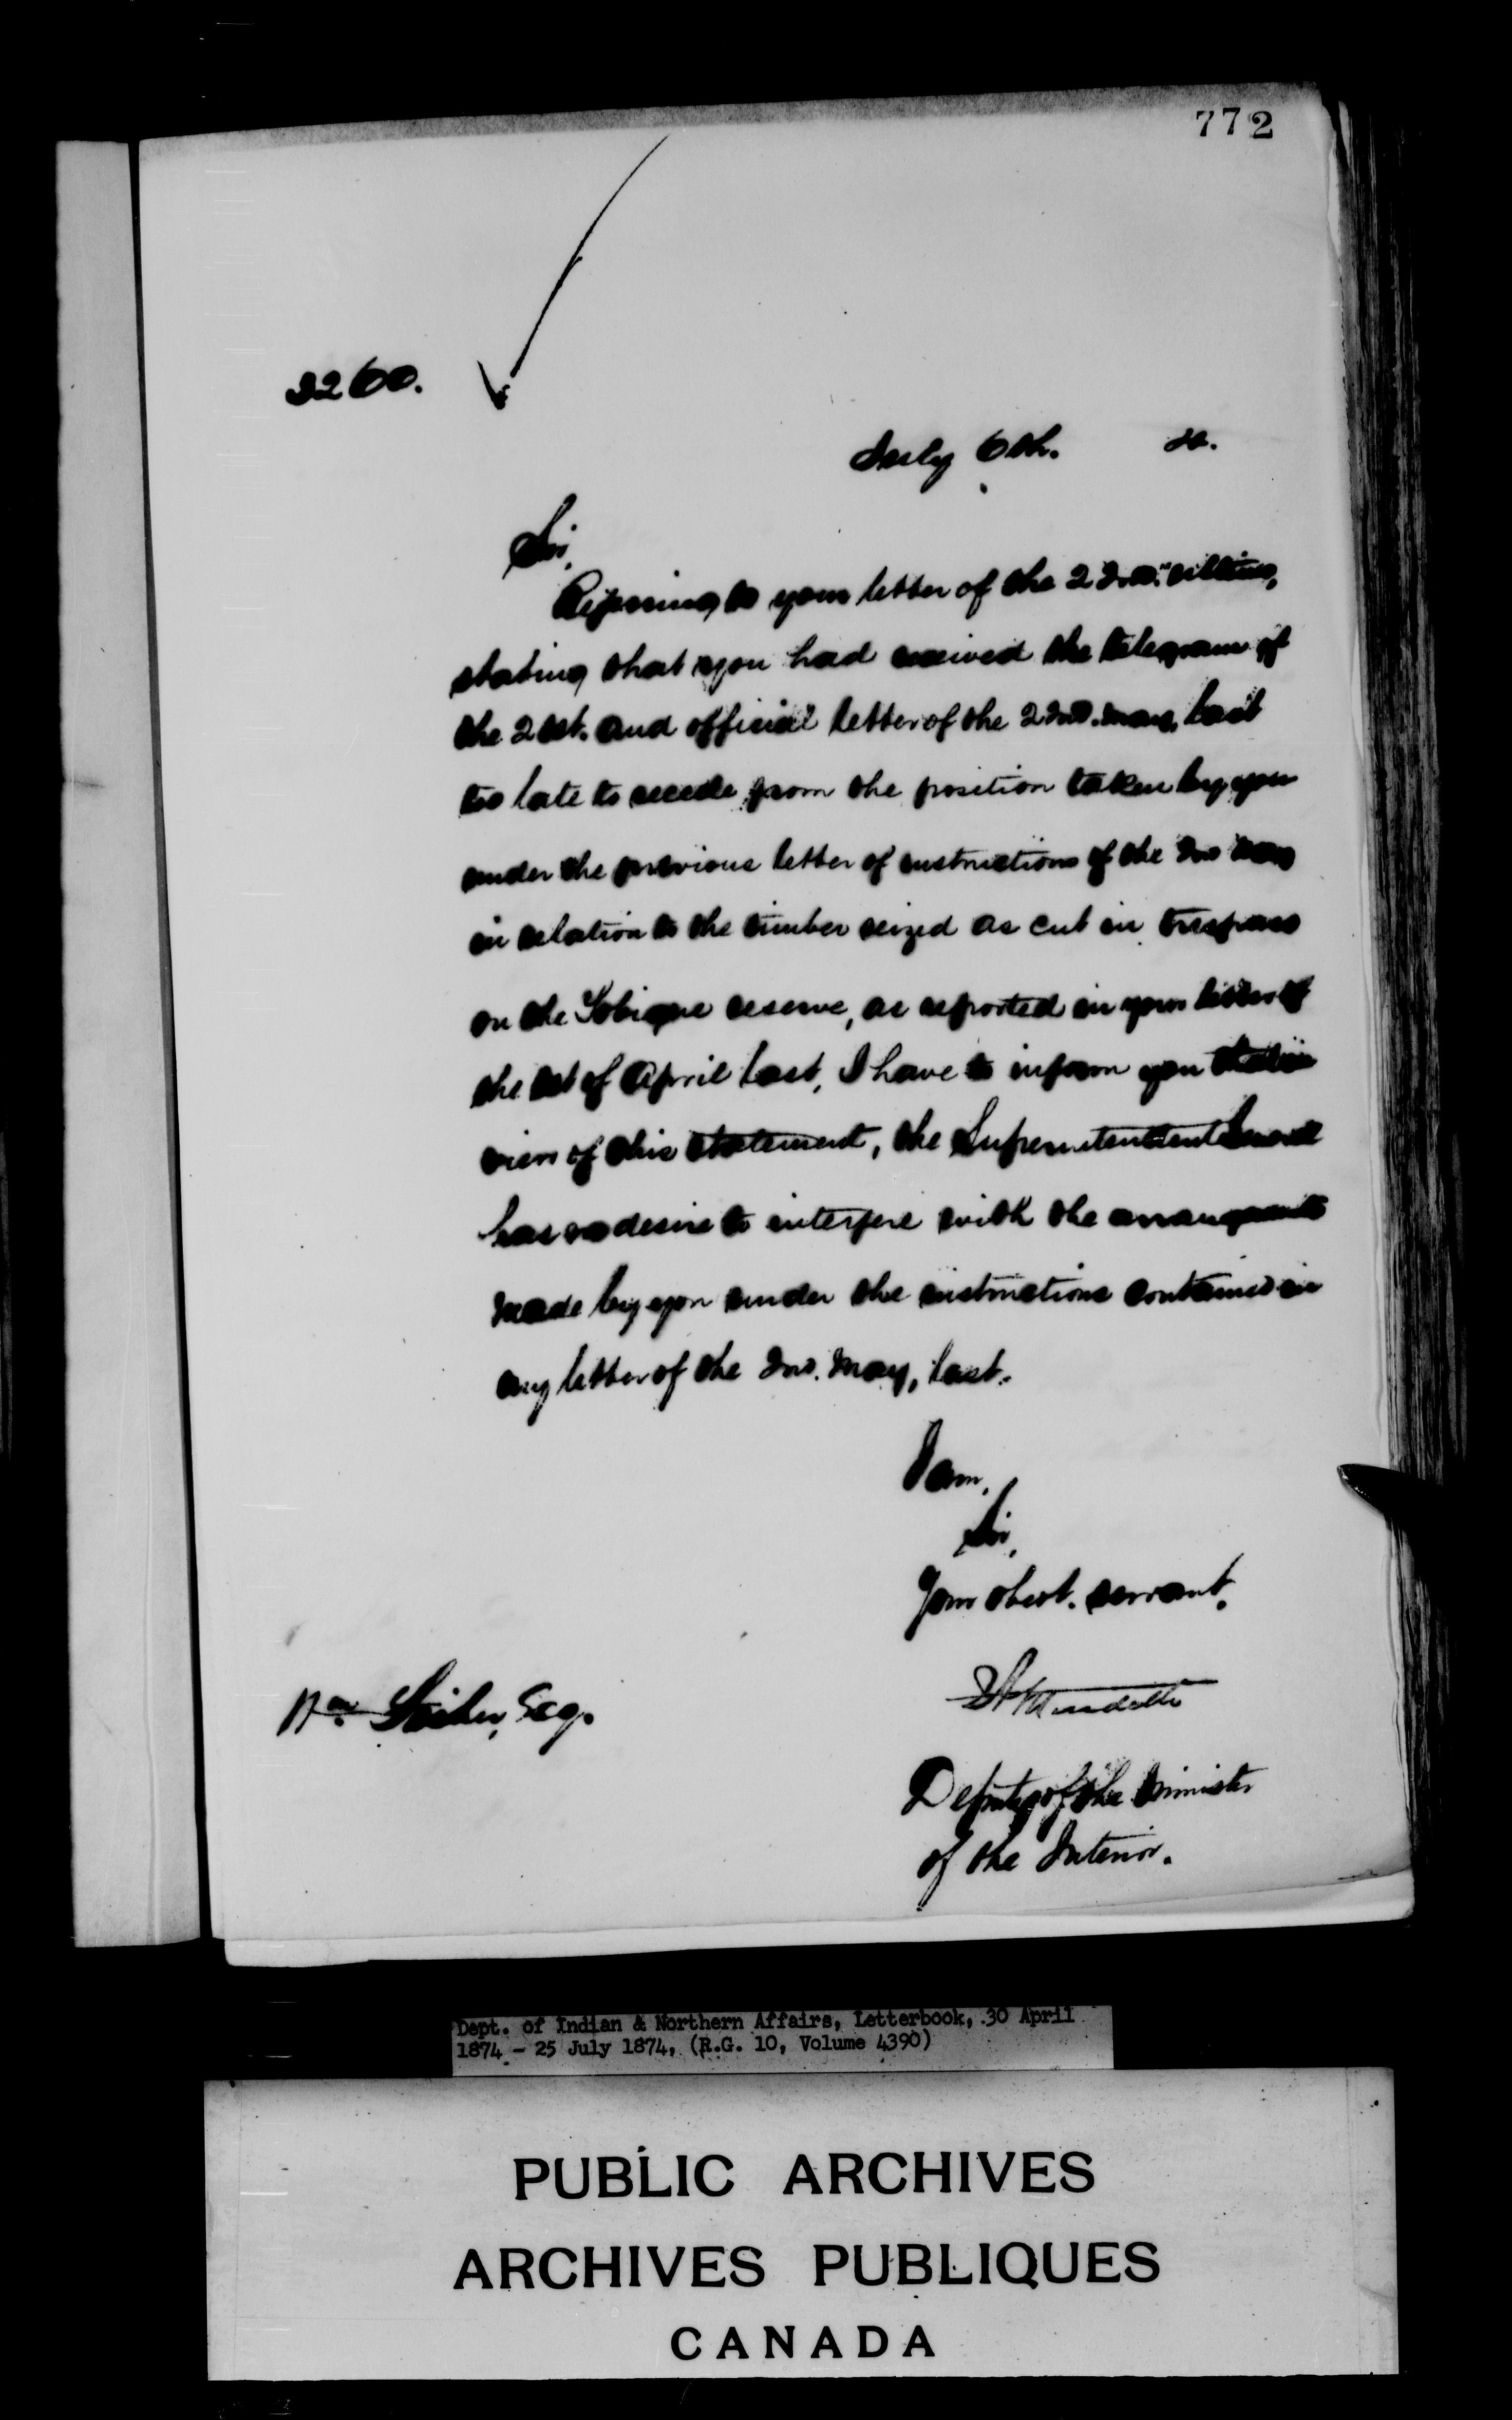 772
3260.
July 6th. 74.
Sir,
Referring to your letter of the 22nd. ultimo,
stating that you had received the telegram of
the 21st. and official letter of the 22nd. May, last
too late to recede from the position taken by you
under the previous letter of instructions of the 2nd May
in relation to the timber seized as cut in trespass
on the Tobique reserve, as reported in your letter of
the 1st of April last, I have to inform you that in
view of this statement, the Superintendent General
has no desire to interfere with the arrangements
made by you under the instructions contained in
my letter of the 2nd. May, last.
I am,
Sir,
Your obedt. servant.
Wm. Esq.
Deputy of the Minister
of the Interior.
Dept. of Indian & Northern Affairs, Letterbook, 30 April
1874 - 25 July 1874, (R.G. 10, Volume 4390)
PUBLIC ARCHIVES
ARCHIVES PUBLIQUES
CANADA